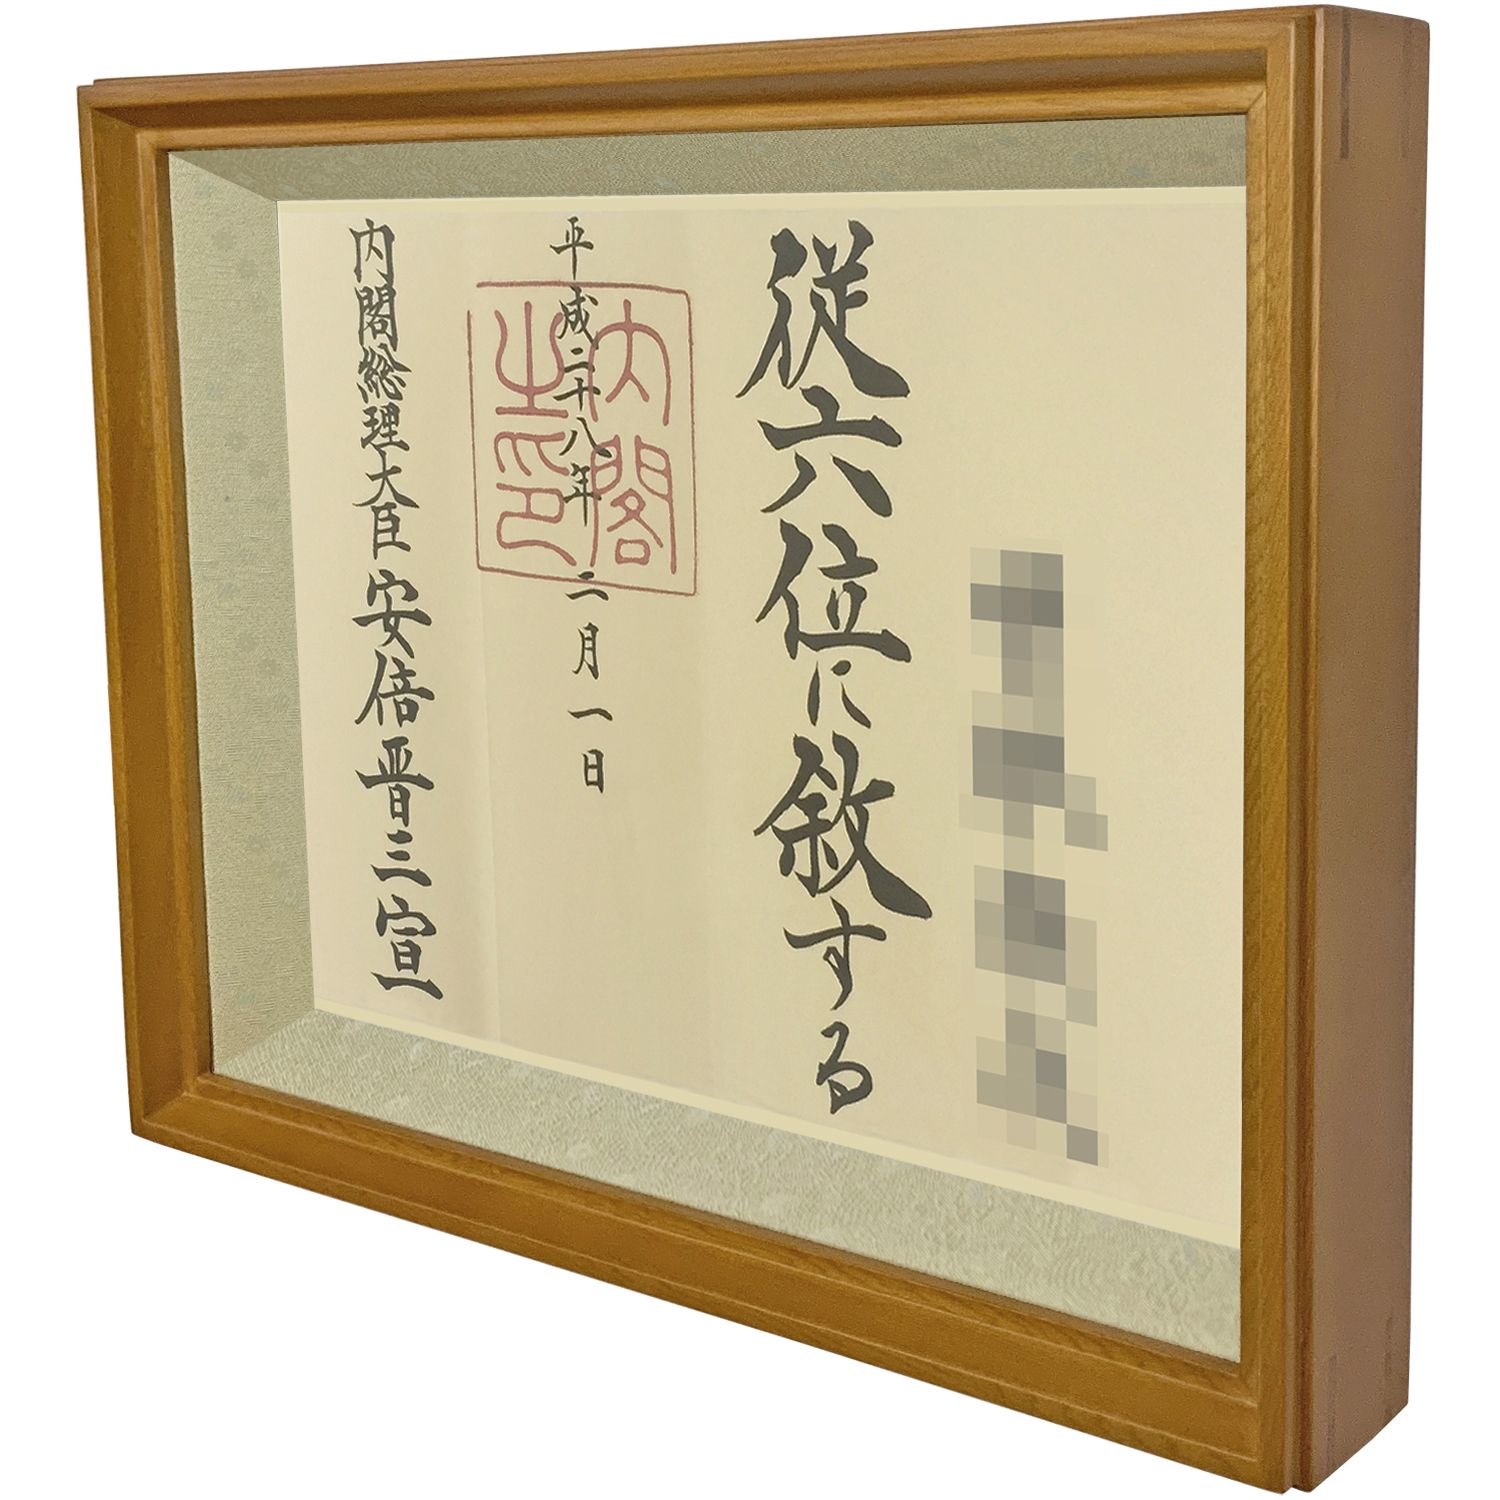 従六位に敘する
平成二十八年二月一日
内閣之印
内閣総理大臣安倍晋三宣